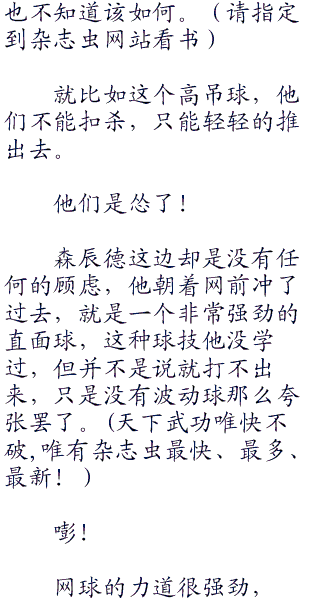 也不知道该如何。（请指定
到杂志虫网站看书）
就比如这个高吊球，他
们不能扣杀，只能轻轻的推
出去。
他们是怂了！
森辰德这边却是没有任
何的顾虑，他朝着网前冲了
过去，就是一个非常强劲的
直面球，这种球技他没学
过，但并不是说就打不出
来，只是没有波动球那么夸
张罢了。(天下武功唯快不
破,唯有杂志虫最快、最多、
最新！)
嘭！
网球的力道很强劲，